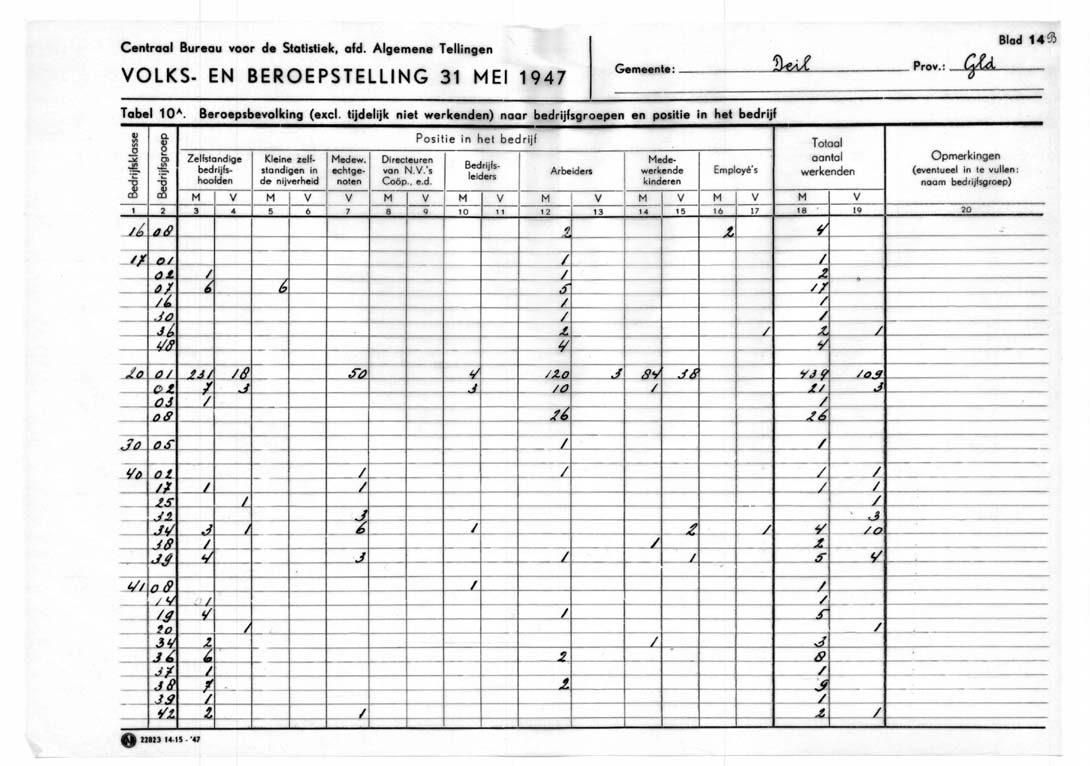 Blad 14B
Centraal Bureau voor de Statistiek, afd. Algemene Tellingen
VOLKS- EN BEROEPSTELLING 31 MEI 1947
Gemeente: Deil Prov.: Gld
Tabel 10A. Beroepsbevolking (excl. tijdelijk niet werkenden) naar bedrijfsgroepen en positie in het bedrijf
Bedrijfsklasse
Bedrijfsgroep
Positie in het bedrijf
Zelfstandige bedrijfs-hoofden
Kleine zelf-standigen in de nijverheid
Medew. echtge-noten
Directeuren van N.V.'s Coöp., e.d.
Bedrijfs-leiders
Arbeiders
Mede-werkende kinderen
Employé's
Totaal aantal werkenden
Opmerkingen (eventueel in te vullen: naam bedrijfsgroep)
M V M V V M V M V M V M V M V M V
1 2 3 4 5 6 7 8 9 10 11 12 13 14 15 16 17 18 19 20
16 08 2 2 4
17 01 1 1
02 1 1 2
07 6 6 5 17
16 1 1
30 1 1
36 2 1 2 1
48 4 4
20 01 231 18 50 4 120 3 84 38 439 109
02 7 3 3 10 1 21 3
03 1 1
08 26 26
30 05 1 1
40 02 1 1 1 1
17 1 1 1 1
25 1 1
32 3 3
34 3 1 6 1 2 1 4 10
38 1 1 2
39 4 3 1 1 5 4
41 08 1 1
14 1 1
19 4 1 5
20 1 1
34 2 1 3
36 6 2 8
37 1 1
38 7 2 9
39 1 1
42 2 1 2 1
22823 14-15 - '47